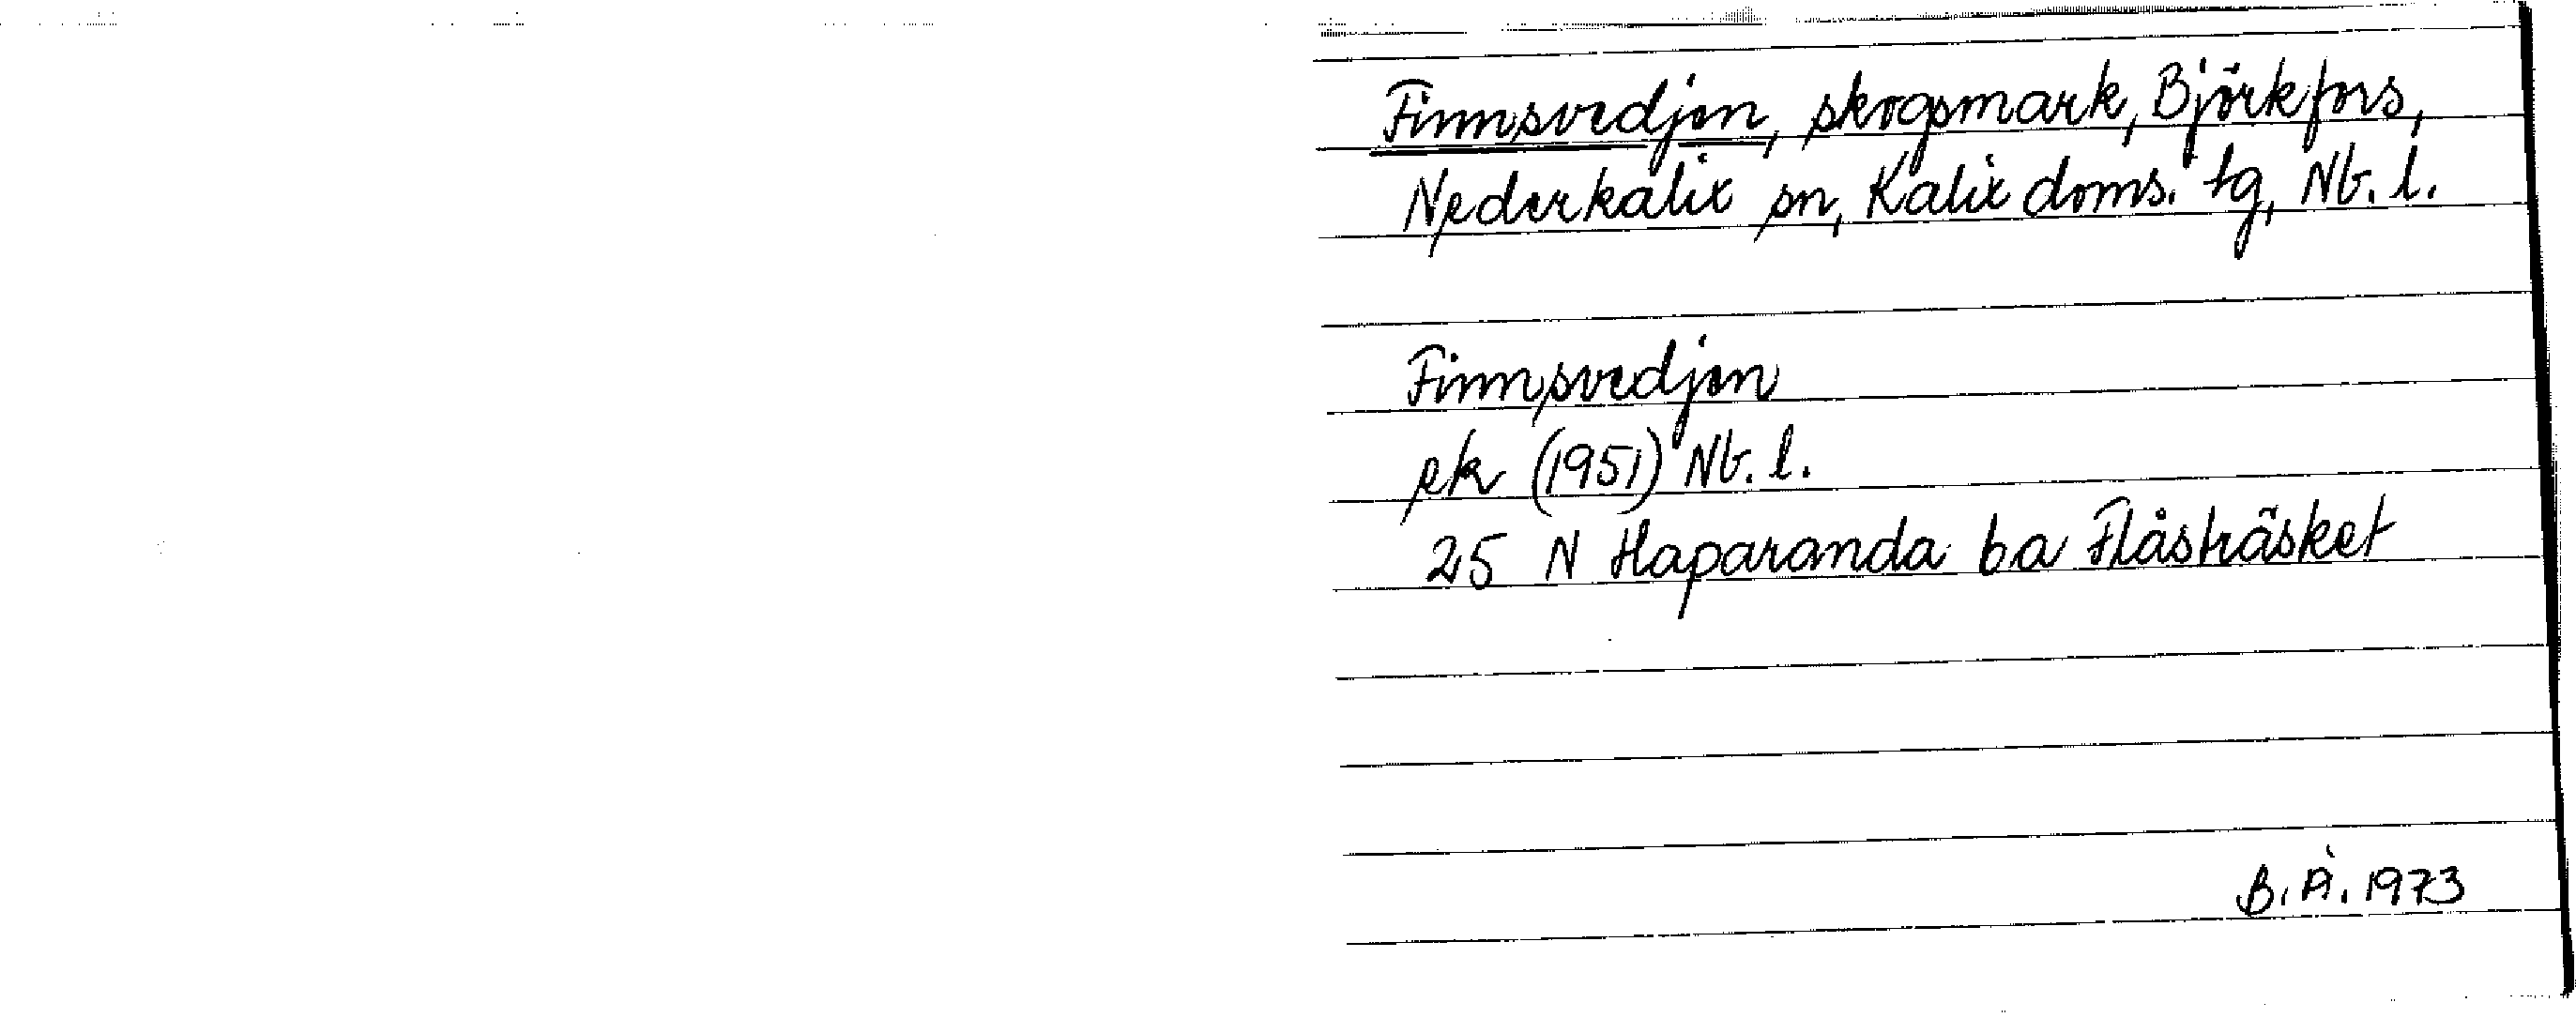 Finnsvedjen, skogsmark, Björkfors,
Nederkalix sn, Kalix doms. tg, Nb. l.
Finnsvedjen
ek (1951) Nb. l.
25 N Haparanda 6a Flåsträsket
B. Å. 1973